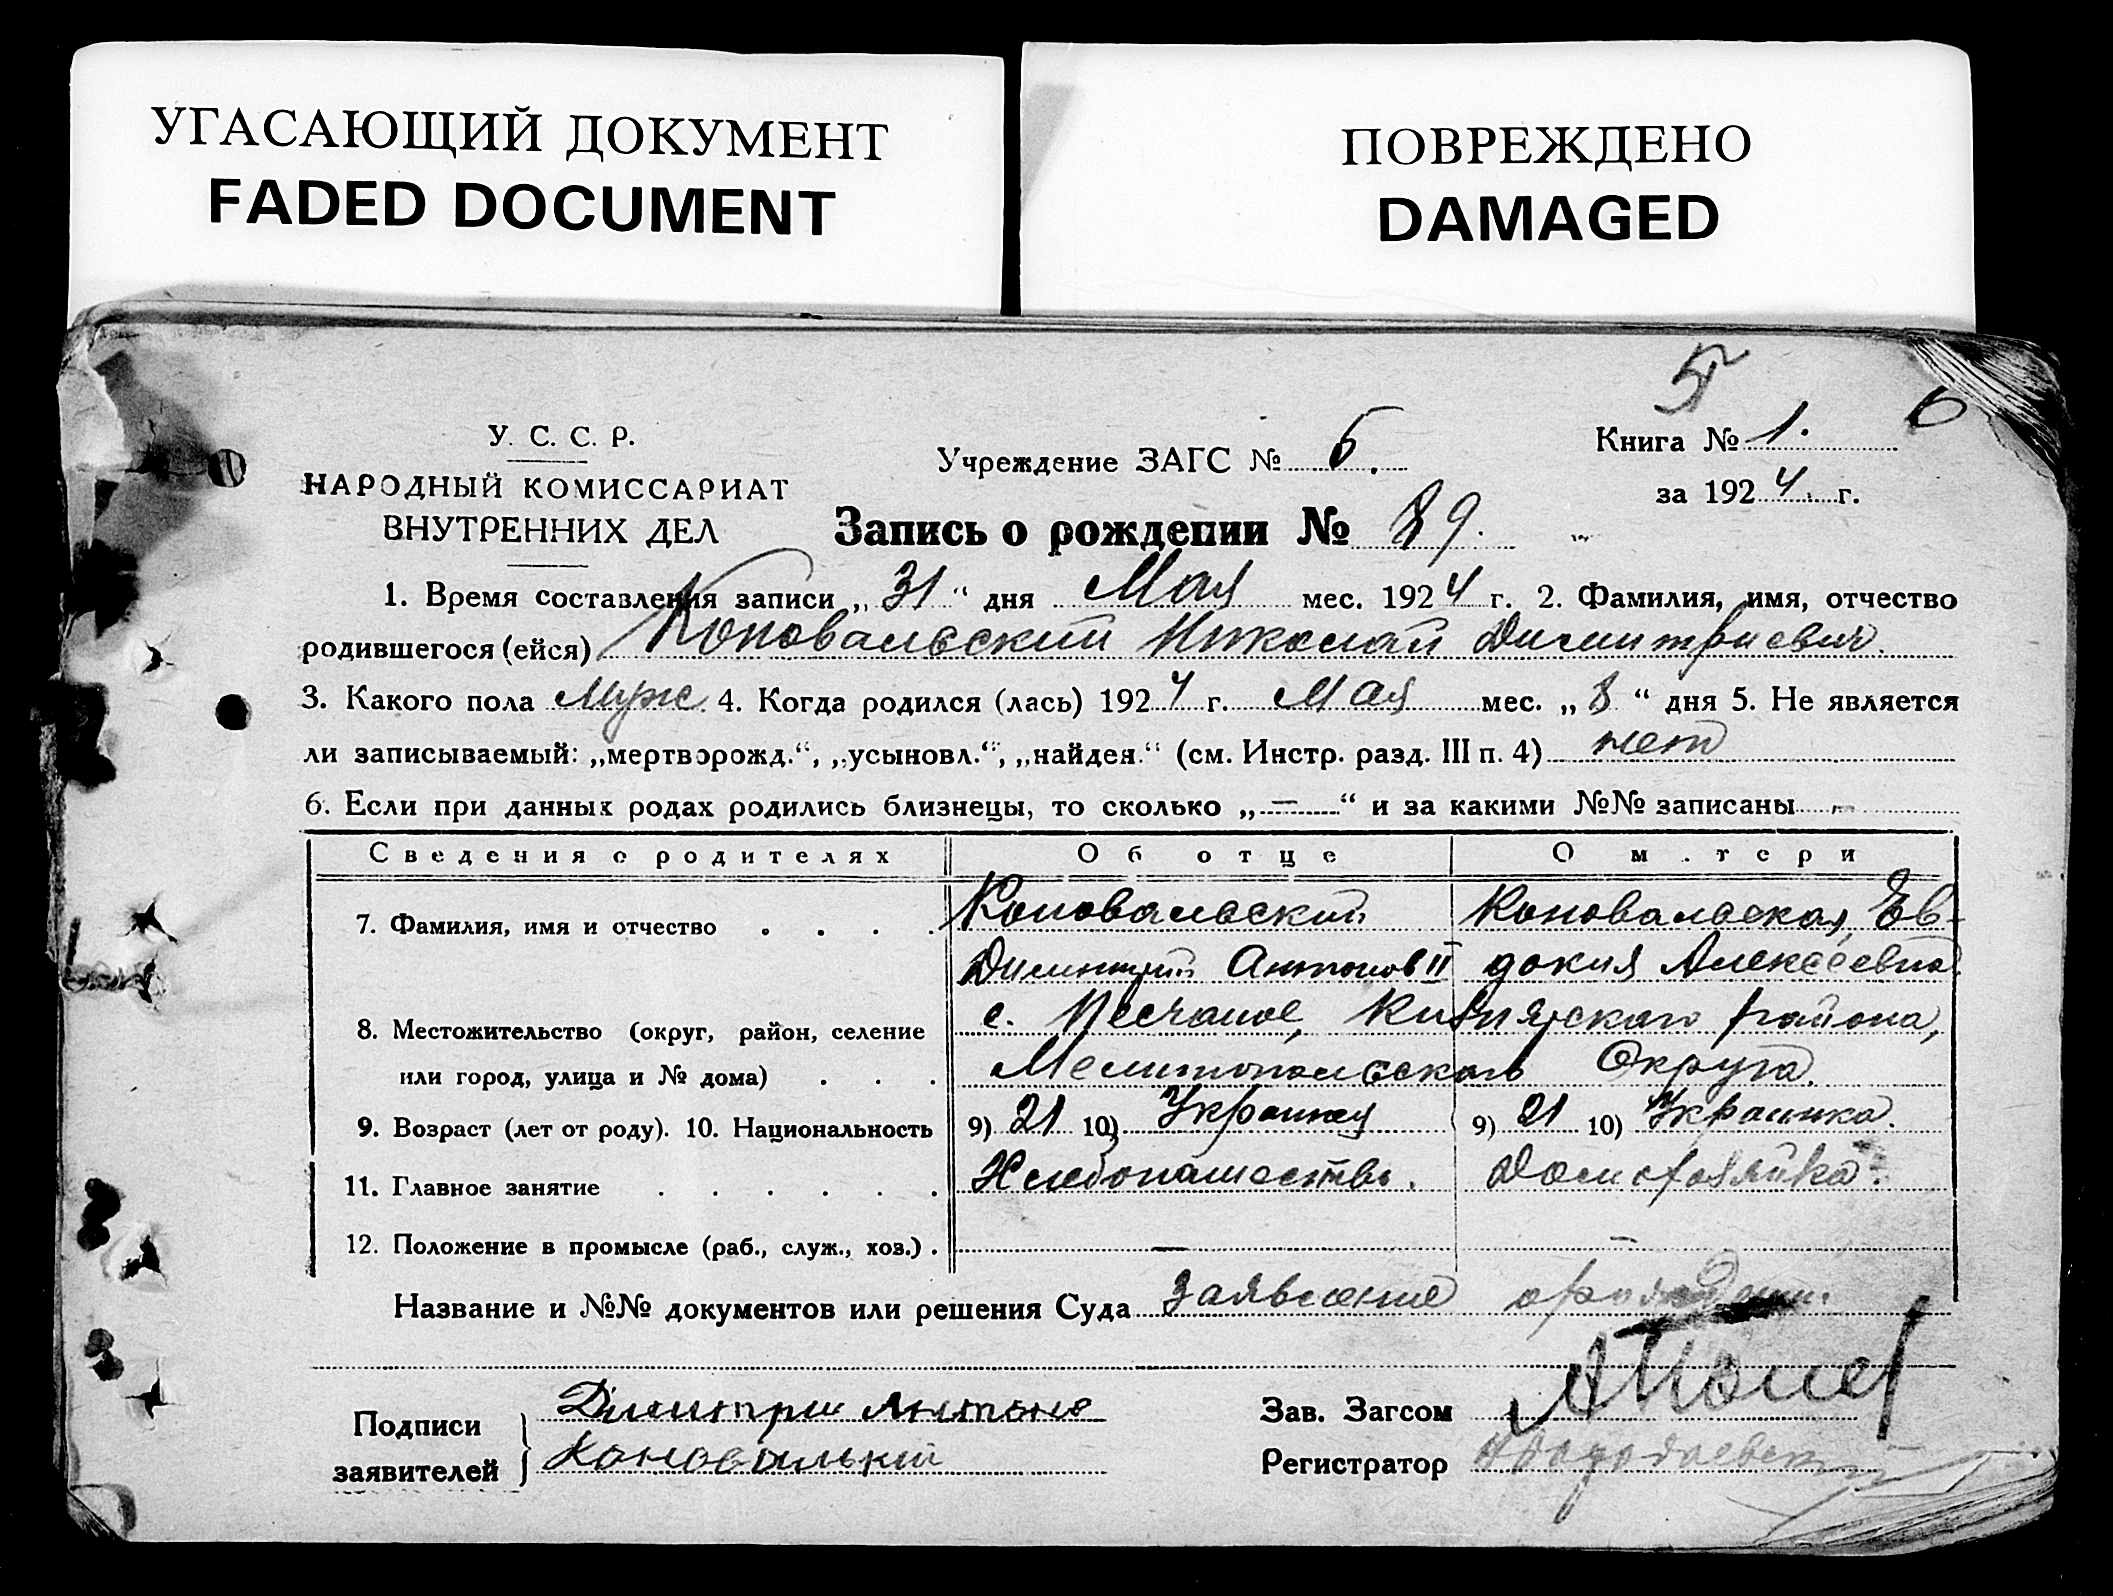 УГАСАЮЩИЙ ДОКУМЕНТ
FADED DOCUMENT
ПОВРЕЖДЕНО
DAMAGED
5
6
У. С. С. Р.
НАРОДНЫЙ КОМИССАРИАТ
ВНУТРЕННИХ ДЕЛ
Учреждение ЗАГС № 6.
Книга № 1.
за 1924. г.
Запись о рождении № 89.
1. Время составления записи „31“ дня Мая мес. 1924 г. 2. Фамилия, имя, отчество
родившегося (ейся) Коновальский Николай Димитриевич.
3. Какого пола Муж. 4. Когда родился (лась) 1924 г. Мая мес. „8“ дня 5. Не является
ли записываемый: „мертворожд.“, „усыновл.“, „найден.“ (см. Инстр. разд. III п. 4) нет
6. Если при данных родах родились близнецы, то сколько „—“ и за какими №№ записаны —
Сведения о родителях Об отце О м.тери
7. Фамилия, имя и отчество . . . . Коновальский Коновальская, Ев-
Димитрий Антонов II докия Алексеевна.
8. Местожительство (округ, район, селение с. Песчаное, района,
или город, улица и № дома) . . . Мелитопольского Округа.
9. Возраст (лет от роду). 10. Национальность 9) 21 10) Украинец 9) 21 10) Украинка.
11. Главное занятие . . . . . . Хлебопашество. Домохозяйка.
12. Положение в промысле (раб., служ., хоз.) . — —
Название и №№ документов или решения Суда Заявление
Подписи
заявителей
Димитри Антоно
Коновалький
Зав. Загсом
Регистратор